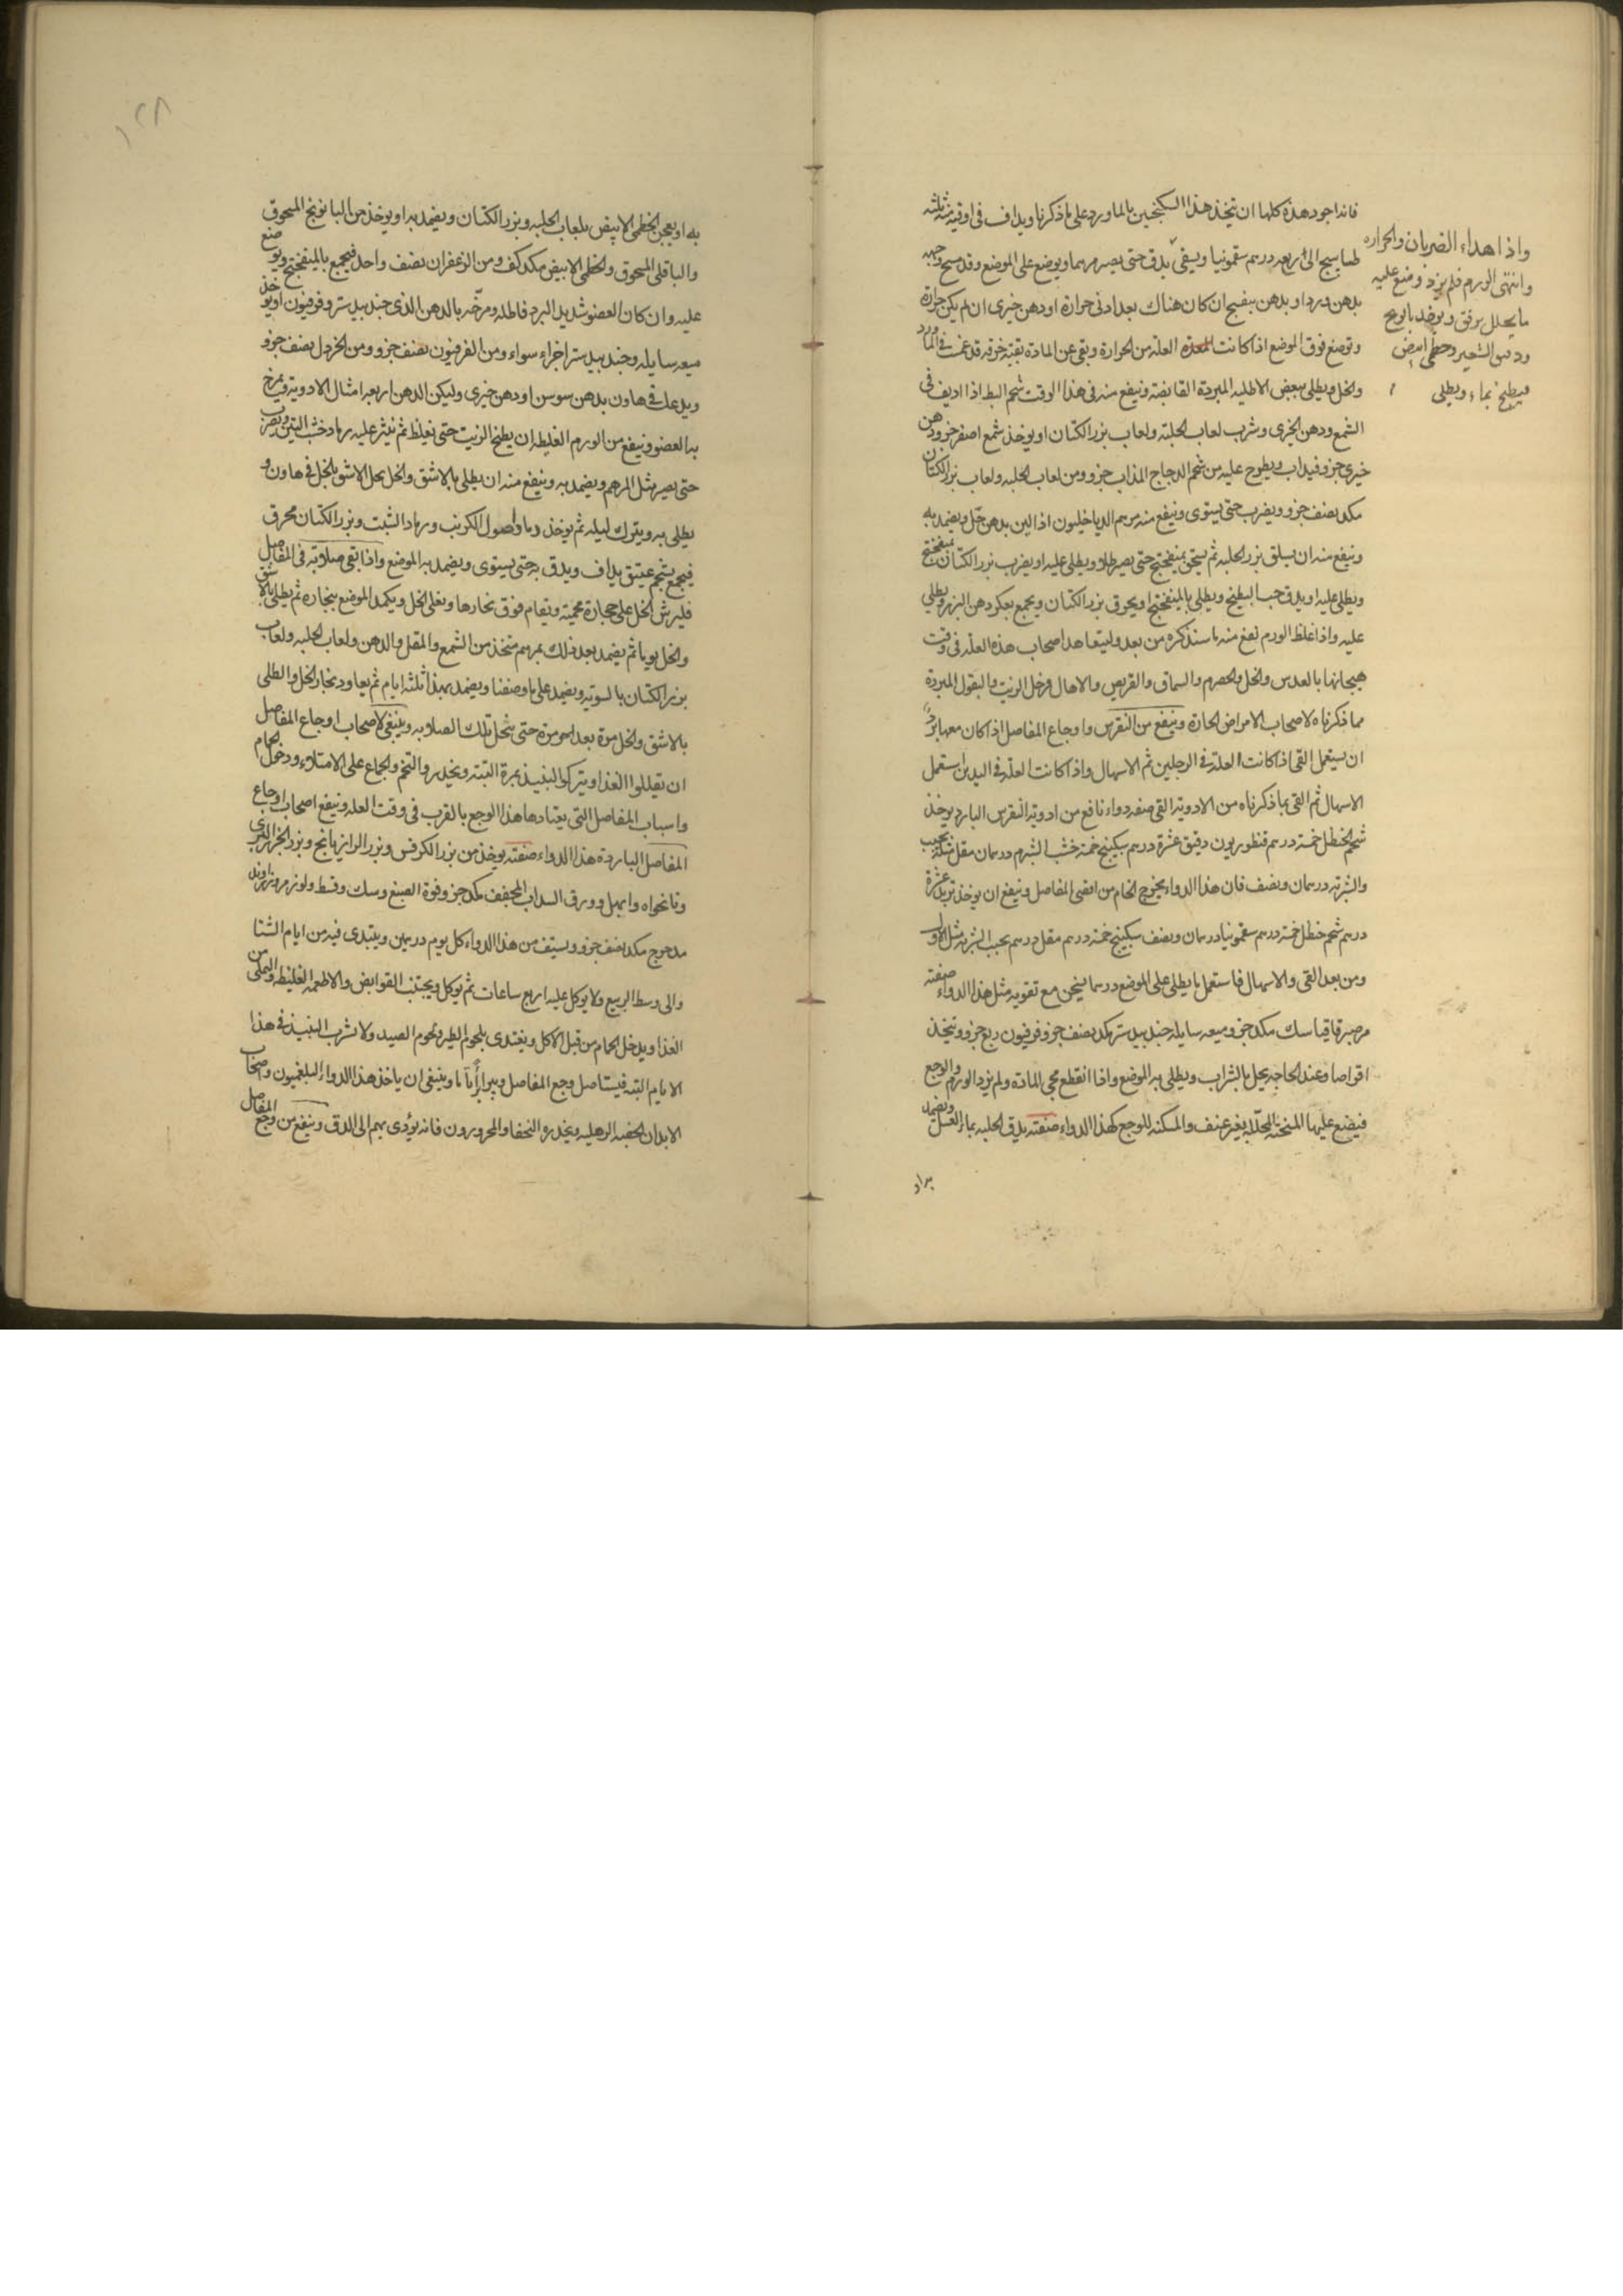 فانه اجود هذه كلها ان يتخذ هذا السكنجبين بالماورد على ما ذكرنا ويداف فى اوقية منه ثلثه
طساسيج الى اربعه درهم سقمونيا ويسقى يدق حتى يصير مرهما ويوضع على الموضع وقد مسح وجهه
بدهن ورد او بدهن بنفسج ان كان هناك بعد ادنى حرارة او دهن خيرى ان لم يكن حرارة
وتوضع فوق الموضع اذا كانت المعده العلة من الحرارة وبقى عن المادة بقية خرقه قد غمست فى الماورد
والخل ويطلى ببعض الاطليه المبردة القابضة وينفع منه فى هذا الوقت شحم البط اذا اديف فى
الشمع ودهن الخيرى وشرب لعاب الحلبة ولعاب بزر الكتان او يوخذ شمع اصفر جزو ودهن
خيرى جزو فيذاب ويطرح عليه من شحم الدجاج المذاب جزو ومن لعاب الحلبه ولعاب بزر الكتان
مكد نصف جزو ويضرب حتى يستوى وينفع منه مرهم الدياخيلون اذا لين بدهن خل ويضمد به
وينفع منه ان يسلق بزر الحلبه ثم يسحق بميفختج حتى يصير طلا ويطلى عليه او يضرب بزر الكتان بميفختج
ويطلى عليه او يدق حب البطيخ ويطلى بالميفختج ويحرق بزر الكتان ويجمع بعكر دهن البزر ويطلى
عليه واذا غلظ الورم نفع منه ما سنذكره من بعد وليتعاهد اصحاب هذه العلة فى وقت
هيجانها بالعدس والخل والحصرم والسماق والقريص والاهال وخل الزيت والبقول المبردة
مما ذكرناه لاصحاب الامراض الحارة وينفع من النقرس واوجاع المفاصل اذا كان معها برد
ان يستعمل القى اذا كانت العلة فى الرجلين ثم الاسهال واذا كانت العلة فى اليدين استعمل
الاسهال ثم القى بما ذكرناه من الادوية القى صفه دواء نافع من ادوية النقرس البارد يوخذ
شحم الحنظل خمسة درهم قنطوريون دقيق عشرة درهم سكبينج خمسة خشب الشبرم درهمان مقل مثله يحبب
والشربة درهمان ونصف فان هذا الدواء يخرج الخام من اقصى المفاصل وينفع ان يوخذ تربد عشرة
درهم شحم حنظل خمسة درهم سقمونيا درهمان ونصف سكبينج خمسة درهم مقل درهم يحبب الشربة مثل الاول
ومن بعد القى والاسهال فاستعمل ما يطلى على الموضع درهما يسخن مع تقوية مثل هذا الدواء صفته
مر صبر قاقيا سك مكد جزو وميعه سايله جندبيدستر مكد نصف جزو فربيون ربع جزو ويتخذ
اقراصا وعند الحاجه يحل بالشراب ويطلى به الموضع واذا انقطع مجى المادة ولم يزد الورم والوجع
فيضع عليها المسخنة المحللة بغير عنف والمسكنه للوجع كهذا الدواء صفته يدق الحلبه بماء العسل ويضمد
به او
واذا هداء الضربان والحراره
وانتهى الورم فلم يزد وضع عليه
ما يحلل برفق ويوخذ بابونج
ودقيق الشعير وخطمى ابيض
فيطبخ بماء ويطلى
١٢٨
به او يعجن الخطمى الابيض بلعاب الحلبه وبزر الكتان ويضمد به او يوخذ من البابونج المسحوق
والباقلى المسحوق والخطمى الابيض مكد كف ومن الزعفران نصف واحد فيجمع بالميفختج ويوضع
عليه وان كان العضو شديد البرد فاطله ومرخه بالدهن الذى جندبيدستر وفربيون او يوخذ
ميعه سايله وجندبيدستر اجزاء سواء ومن الفربيون نصف جزو ومن الخردل نصف جزو
ويدعك فى هاون بدهن سوسن او دهن خيرى وليكن الدهن اربعه امثال الادوية ويمرخ
به العضو وينفع من الورم الغليظ ان يطبخ الزيت حتى يغلظ ثم ينثر عليه رماد خشب التين ويضرب
حتى يصير مثل المرهم ويضمد به وينفع منه ان يطلى بالاشق والخل يحل الاشق بالخل فى هاون و
يطلى به ويترك ليله ثم يوخذ رماد اصول الكرنب ورماد الشبت وبزر الكتان محرق
فيجمع بشحم عتيق يداف ويدق به حتى يستوى ويضمد به الموضع واذا بقى صلابة فى المفاصل
فليرش الخل على حجارة محمية ويقام فوق بخارها ويغلى الخل ويكمد الموضع ببخاره ثم يطلى بالاشق
والخل يوما ثم يضمد بعد ذلك بمرهم متخذ من الشمع والمقل والدهن ولعاب الحلبه ولعاب
بزر الكتان بالسوية ويضمد على ما وصفنا ويضمد بهذا ثلثة ايام ثم يعاود بخار الخل والطلى
بالاشق والخل مرة بعد اخرى مرة حتى يتحلل تلك الصلابه وينبغى لاصحاب اوجاع المفاصل
ان يقللوا الغذا ويتركوا النبيذ بمرة البتة ويحذروا التخم والجماع على الامتلاء ودخول الحمام
واسباب المفاصل التى يعتادها هذا الوجع بالقرب فى وقت العله وينفع اصحاب اوجاع
المفاصل الباردة هذا الدواء صفته يوخذ من بزر الكرفس وبزر الرازيانج وبزر الجزر البرى
ونانخواه وابهل وورق السداب المجفف مكد جزو وفوة الصبغ وسك وقسط ولوز مر وزراوند
مدحرج مكد نصف جزو ويستف من هذا الدواء كل يوم درهمين ويبتدى فيه من ايام الشتا
والى وسط الربيع ولا يوكل عليه اربع ساعات ثم يوكل ويجتنب القوابض والاطعمه الغليظه والتملى من
الغذا ويدخل الحمام من قبل الاكل ويغتدى بلحوم الطير ولحوم الصيد ولا شرب النبيذ فى هذا
الايام البته فيستاصل وجع المفاصل ويبرا برأ تاما وينبغى ان ياخذ هذا الدواء البلغميون واصحاب
الابدان الخصبه الرهليه ويحذره النحفا والمحرورون فانه يؤدى بهم الى الدق وينفع من وجع المفاصل